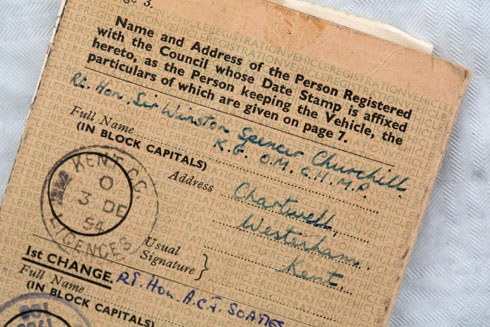 Page 3.
Name and Address of the Person Registered
with the Council whose Date Stamp is affixed
hereto, as the Person keeping the Vehicle, the
particulars of which are given on page 7.
Rt. Hon. Sir Winston Spencer Churchill.
Full Name
K.G. O.M. C.H. M.P.
(IN BLOCK CAPITALS)
Address Chartwell,
Westerham.
Kent.
KENT C.C.
3 DE
54
LICENCES
Usual
Signature
1st CHANGE
Full Name RT. HON. A.C.J. SOAMES
(IN BLOCK CAPITALS)